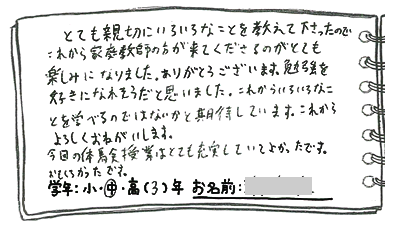 とても親切にいろいろなことを教えて下さったので
これから家庭教師の方が来てくださるのがとても
楽しみになりました。ありがとうございます。勉強を
好きになれそうだと思いました。これからいろいろなこ
とを学べるのではないかと期待しています。これから
よろしくおねがいします。
今回の体験授業はとても充実していてよかったです。
おもしろかったです。
学年：小・中・高（3）年 お名前：